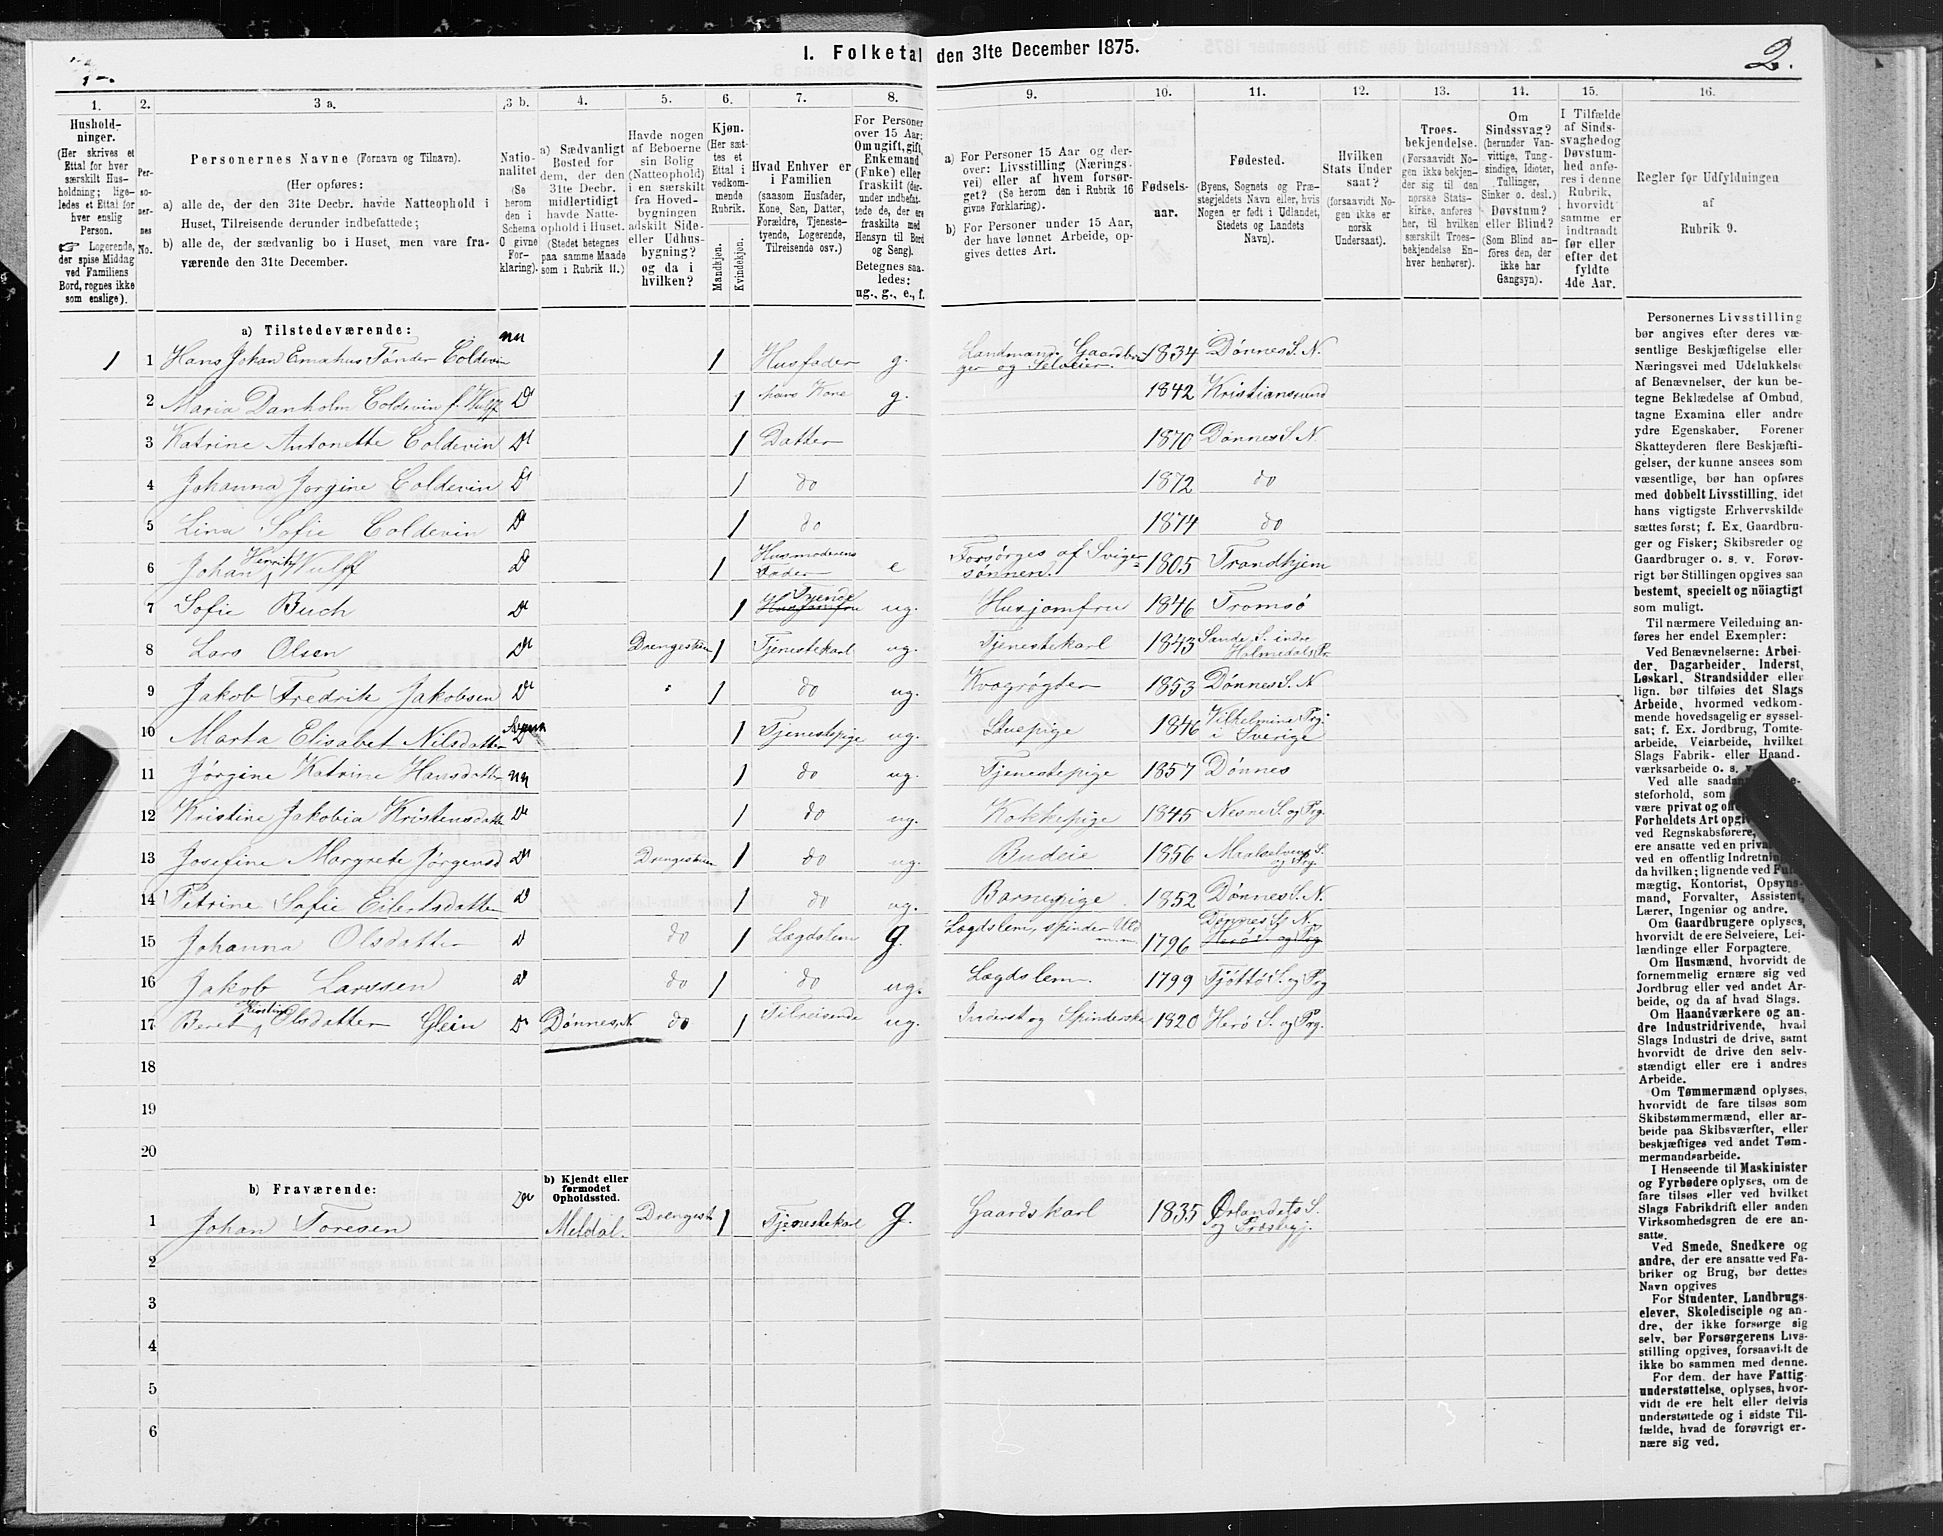 I. Folketal den 31te December 1875.
2.
1.
2.
3 a.
3 b.
4.
5.
6.
7.
8.
9.
10.
11.
12.
13.
14.
15.
16.
Hushold-
ninger.
(Her skrives et
Ettal for hver
særskilt Hus-
holdning; lige-
ledes et Ettal for
hver enslig
Person.
☞ Logerende,
der spise Middag
ved Familiens
Bord, regnes ikke
som enslige).
Per-
so-
ner-
nes
No.
Personernes Navne (Fornavn og Tilnavn).
(Her opføres:
a) alle de, der den 31te Decbr. havde Natteophold i
Huset, Tilreisende derunder indbefattede;
b) alle de, der sædvanlig bo i Huset, men vare fra-
værende den 31te December.
Natio-
nalitet
(Se
herom
den i
Schema
O givne
For-
klaring).
a) Sædvanligt
Bosted for
dem, der den
31te Decbr.
midlertidigt
havde Natte-
ophold i Huset.
(Stedet betegnes
paa samme Maade
som i Rubrik 11.)
Havde nogen
af Beboerne
sin Bolig
(Natteophold)
i en særskilt
fra Hoved-
bygningen
adskilt Side-
eller Udhus-
bygning?
og da i
hvilken?
Kjøn.
(Her sæt-
tes et
Ettal i
vedkom-
mende
Rubrik.
Mandkjøn.
Kvindekjøn.
Hvad Enhver er
i Familien
(saasom Husfader,
Kone, Søn, Datter,
Forældre, Tjeneste-
tyende, Logerende,
Tilreisende osv.)
For Personer
over 15 Aar:
Om ugift, gift,
Enkemand
(Enke) eller
fraskilt (der-
under indbefat-
tede de, der ere
fraskilte med
Hensyn til Bord
og Seng).
Betegnes saa-
ledes:
ug., g., e., f.
a) For Personer 15 Aar og der-
over: Livsstilling (Nærings-
vei) eller af hvem forsør-
get? (Se herom den i Rubrik 16
givne Forklaring).
b) For Personer under 15 Aar,
der have lønnet Arbeide, op-
gives dettes Art.
Fødsels-
aar.
Fødested.
(Byens, Sognets og Præ-
stegjeldets Navn eller, hvis
Nogen er født i Udlandet,
Stedets og Landets
Navn).
Hvilken
Stats Under
saat?
(forsaavidt No-
gen ikke er
norsk
Undersaat).
Troes-
bekjendelse.
(Forsaavidt No-
gen ikke bekjen-
der sig til den
norske Stats-
kirke, anføres
her, til hvilken
særskilt Troes-
bekjendelse En-
hver henhører).
Om
Sindssvag?
(herunder Van-
vittige, Tung-
sindige, Idioter,
Tullinger,
Sinker o. desl.)
Døvstum?
eller Blind?
(Som Blind an-
føres den, der
ikke har
Gangsyn).
I Tilfælde
af Sinds-
svaghed og
Døvstum-
hed anfø-
res i denne
Rubrik,
hvorvidt
samme er
indtraadt
før eller
efter det
fyldte
4de Aar.
Regler for Udfyldningen
af
Rubrik 9.
a) Tilstedeværende:
1 1 Hans Johan Emahus Tønder Coldevin nn 1 Husfader g. Landmand. Gaardbru-
ger og Selveier. 1834 Dønnes S. N.
2 Maria Danholm Coldevin f. Wulff Do 1 hans Kone g. 1842 Kristianssund
3 Katrine Antonette Coldevin Do 1 Datter 1870 Dønnes S. N.
4 Johanna Jørgine Coldevin Do 1 do 1872 do
5 Lina Sofie Coldevin Do 1 do 1874 do
6 Johan Henrik Wulff Do 1 Husmoderens
Fader e Forsørges af Sviger-
sønnen. 1805 Trondhjem
7 Sofie Buch Do 1 Tjener Husjomfru ug. Husjomfru 1846 Tromsø
8 Lars Olsen Do Drengestuen 1 Tjenestekarl ug. Tjenestekarl 1843 Sande S. indre
Holmedals Pr
9 Jakob Fredrik Jakobsen Do " 1 do ug. Kvægrøgter 1853 Dønnes S. N
10 Marta Elisabet Nilsdatter 1 Tjenestepige ug. Stuepige 1846 Vilhelmina Prgj
i Sverige
11 Jørgine Katrine Hansdatter nn 1 do ug. Tjenestepige 1857 Dønnes
12 Kristine Jakobia Kristensdatter Do 1 do ug. Kokkepige 1845 Nesne S. og Prg.
13 Josefine Margrete Jørgensd Do Drengestuen 1 do ug. Budeie 1856 Maalselvens S.
og Prg.
14 Petrine Sofie Eilertsdatter D 1 do ug. Barnepige. 1852 Dønnes S. N.
15 Johanna Olsdatter D do 1 Lægdslem g. Lægdslem, spinder Uld
m.m. 1796 Dønnes S. N.
Herø S. og Prg
16 Jakob Larssen D do 1 do ug. Lægdslem. 1799 Tjøttø S. og Prg
17 Beret Kirstine Olsdatter Glein Do Dønnes, N. do 1 Tilreisende ug. Inderst og Spinderske 1820 Herø S. og Prg.
18
19
20
b) Fraværende:
b) Kjendt eller
formodet
Opholdssted.
1 Johan Toresen Do Meldal. Drengest 1 Tjenestekarl g. Gaardskarl 1835 Ørlandets S.
og Præstgj.
2
3
4
5
6
Personernes Livsstilling
bør angives efter deres væ-
sentlige Beskjæftigelse eller
Næringsvei med Udelukkelse
af Benævnelser, der kun be-
tegne Beklædelse af Ombud,
tagne Examina eller andre
ydre Egenskaber. Forener
Skatteyderen flere Beskjæfti-
gelser, der kunne ansees som
væsentlige, bør han opføres
med dobbelt Livsstilling, idet
hans vigtigste Erhvervskilde
sættes først; f. Ex. Gaardbru-
ger og Fisker; Skibsreder og
Gaardbruger o. s. v. Forøv-
rigt bør Stillingen opgives saa
bestemt, specielt og nöiagtigt
som muligt.
Til nærmere Veiledning an-
føres her endel Exempler:
Ved Benævnelserne: Arbei-
der, Dagarbeider, Inderst,
Løskarl, Strandsidder eller
lign. bør tilføies det Slags
Arbeide, hvormed vedkom-
mende hovedsagelig er syssel-
sat; f. Ex. Jordbrug, Tomte-
arbeide, Veiarbeide, hvilket
Slags Fabrik- eller Haand-
værksarbeide o. s.
Ved alle
steforhold, som
være privat og
Forholdets Art
ved Regnskabsførere,
ere ansatte ved en
ved en offentlig Indretning
da hvilken; lignende ved
mægtig, Kontorist, Opsyns-
mand, Forvalter, Assistent,
Lærer, Ingeniør og andre.
Om Gaardbrugere oplyses,
hvorvidt de ere Selveiere, Lei-
lændinge eller Forpagtere.
Om Husmænd, hvorvidt de
fornemmelig ernære sig ved
Jordbrug eller ved andet Ar-
beide, og da af hvad Slags.
Om Haandværkere og an-
dre Industridrivende, hvad
Slags Industri de drive, samt
hvorvidt de drive den selv-
stændigt eller ere i andres
Arbeide.
Om Tømmermænd oplyses,
hvorvidt de fare tilsøs som
Skibstømmermænd, eller ar-
beide paa Skibsværfter, eller
beskjæftiges ved andet Tøm-
mermandsarbeide.
I Henseende til Maskinister
og Fyrbødere oplyses, om de
fare tilsøs eller ved hvilket
Slags Fabrikdrift eller anden
Virksomhedsgren de ere an-
satte.
Ved Smede, Snedkere og
andre, der ere ansatte ved Fa-
briker og Brug, bør dettes
Navn opgives
For Studenter, Landbrugs-
elever, Skoledisciple og an-
dre, der ikke forsørge sig
selv, bør Forsørgerens Livs-
stilling opgives, forsaavidt de
ikke bo sammen med denne.
For dem, der have Fattig-
understøttelse, oplyses, hvor-
vidt de ere helt eller delvis
understøttede og i sidste Til-
fælde, hvad de forøvrigt er-
nære sig ved.